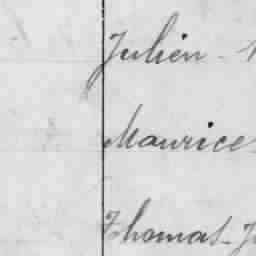 Julien -
Maurice
Thomas - J